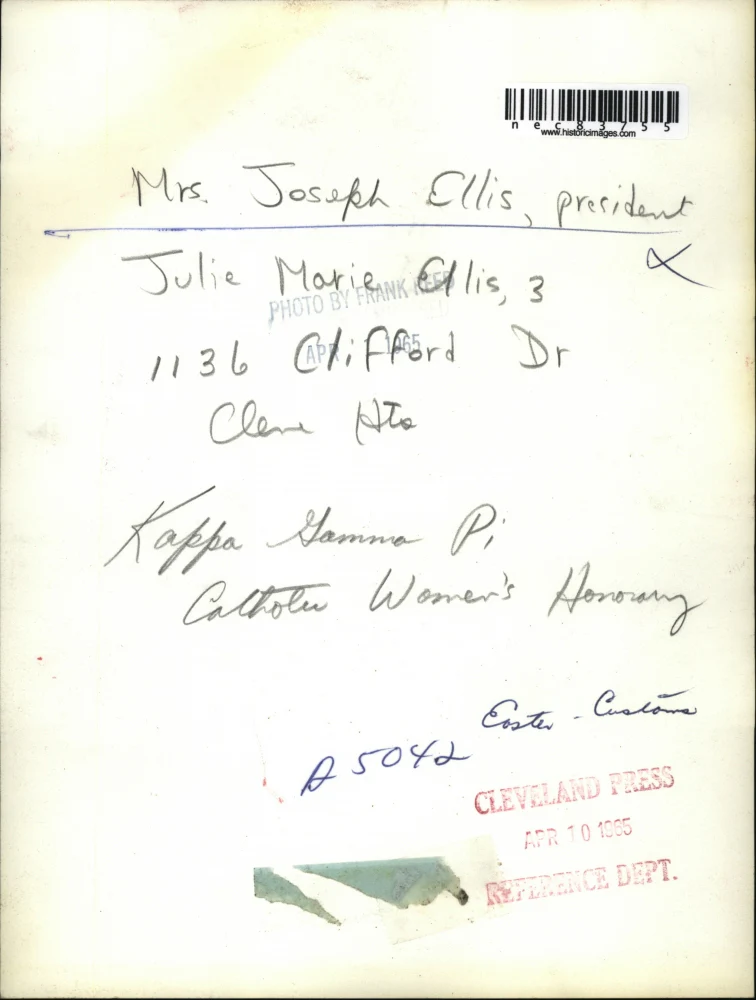 nec83755
www.historicimages.com
Mrs. Joseph Ellis, president
Julie Marie Ellis, 3
PHOTO BY FRANK REED
1136 Clifford Dr
APR 1965
Cleve Hts
Kappa Gamma Pi
Catholic Women's Honorary
Easter - Customs
A 5042
CLEVELAND PRESS
APR 10 1965
REFERENCE DEPT.